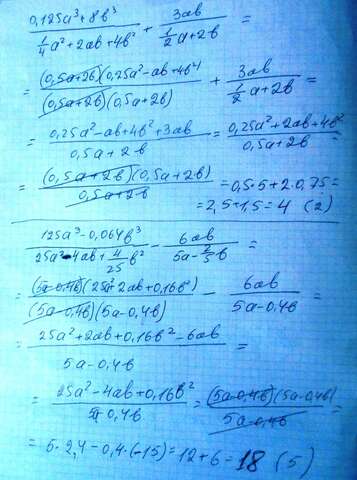 (0,125a³ + 8b³)/(1/4 a² + 2ab + 4b²) + 3ab/(1/2 a + 2b) =
= (0,5a+2b)(0,25a² - ab + 4b²)/(0,5a+2b)(0,5a+2b) + 3ab/(1/2 a + 2b) =
= (0,25a² - ab + 4b² + 3ab)/(0,5a + 2b) = (0,25a² + 2ab + 4b²)/(0,5a + 2b) =
= (0,5a + 2b)(0,5a + 2b)/(0,5a + 2b) = 0,5·5 + 2·0,75 =
= 2,5 + 1,5 = 4 (2)
(125a³ - 0,064b³)/(25a² - 4ab + 4/25 b²) - 6ab/(5a - 2/5 b) =
= (5a - 0,4b)(25a² + 2ab + 0,16b²)/(5a - 0,4b)(5a - 0,4b) - 6ab/(5a - 0,4b) =
= (25a² + 2ab + 0,16b² - 6ab)/(5a - 0,4b) =
= (25a² - 4ab + 0,16b²)/(5a - 0,4b) = (5a - 0,4b)(5a - 0,4b)/(5a - 0,4b) =
= 5·2,4 - 0,4·(-15) = 12 + 6 = 18 (5)